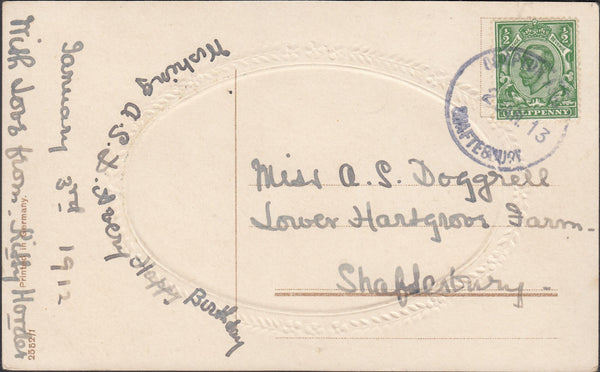 Wishing A.S.D. A very Happy Birthday
January 3rd 1912
With love from Kitty
Printed in Germany.
2552/1
1/2 1/2
HALFPENNY
SHAFTESBURY
13
Miss A.S. Doggrell
Lower Hartgrove Farm
Shaftesbury